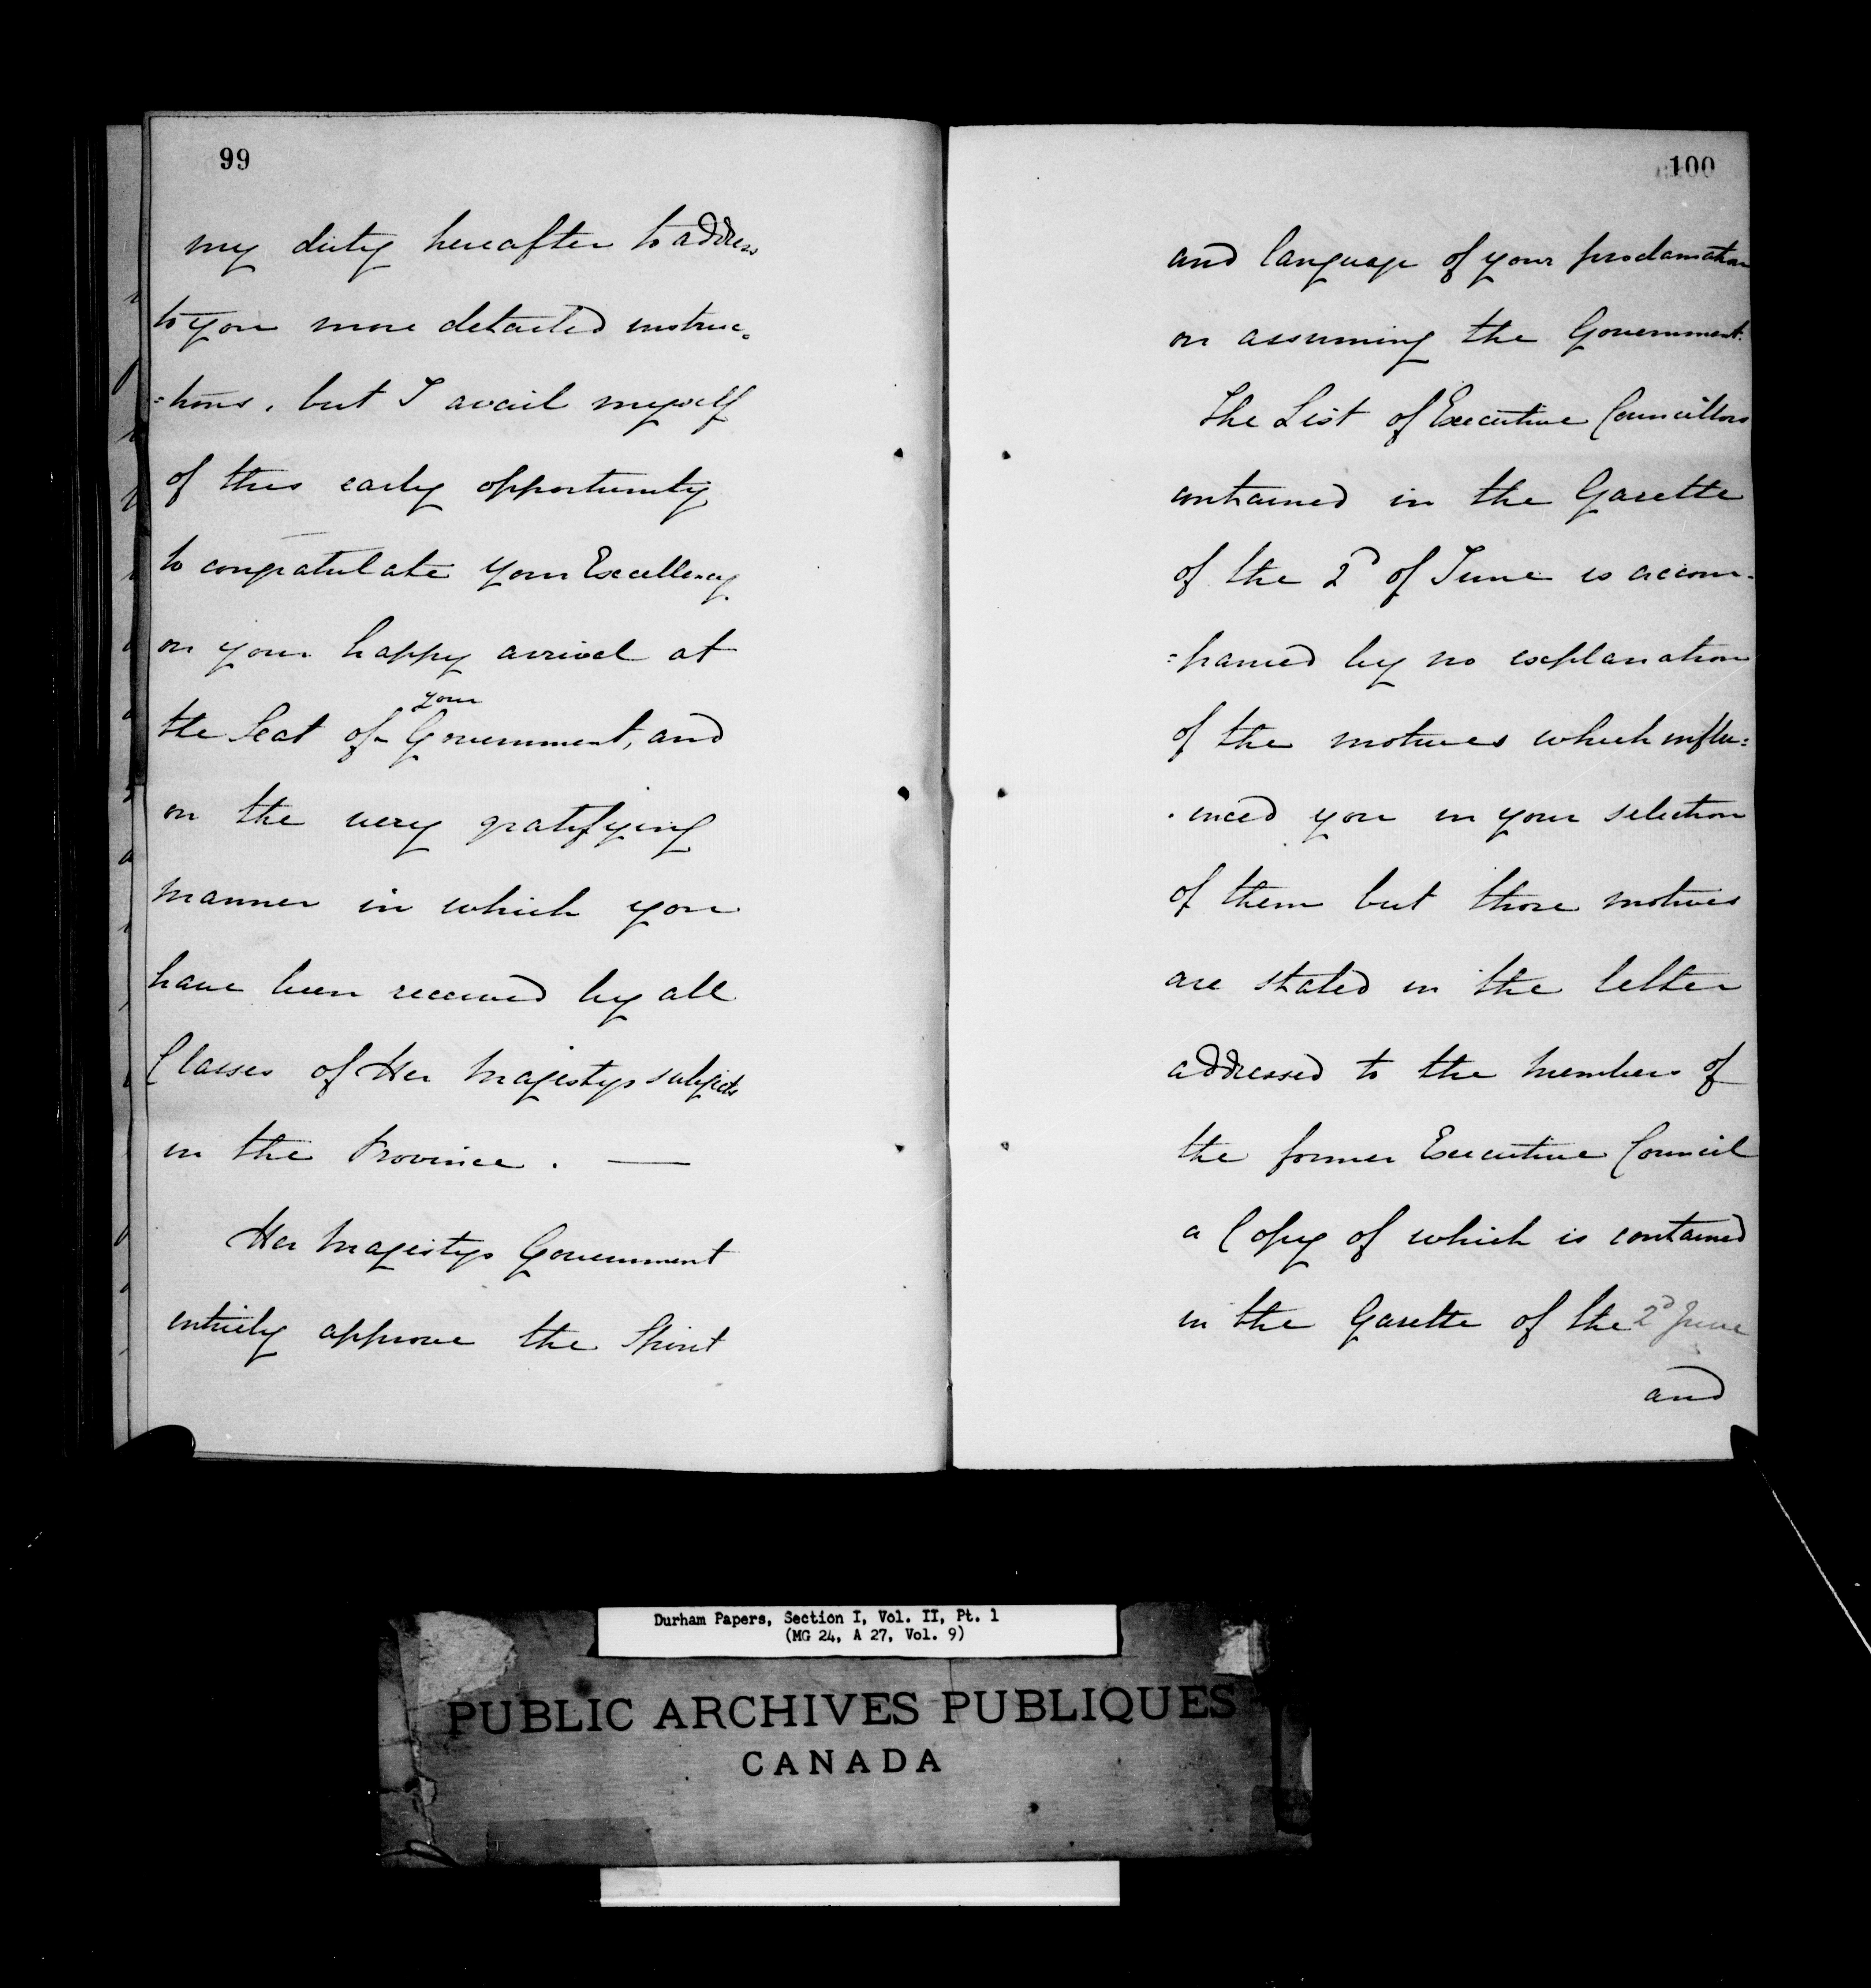 99
my duty hereafter to address
to you more detailed instruc=
=tions, but I avail myself
of this early opportunity
to congratulate your Excellency
on your happy arrival at
your
the Seat of Government, and
on the very gratifying
manner in which you
have been received by all
Classes of Her Majestys subjects
in the Province. —
Her Majestys Government
entirely approve the Spirit
100
and language of your proclamation
on assuming the Government.
The List of Executive Councillors
contained in the Gazette
of the 2d of June is accom-
=panied by no explanation
of the motives which influ=
-enced you in your selection
of them but those motives
are stated in the letter
addressed to the members of
the former Executive Council
a Copy of which is contained
in the Gazette of the 2d June
and
Durham Papers, Section I, Vol. II, Pt. 1
(MG 24, A 27, Vol. 9)
PUBLIC ARCHIVES PUBLIQUES
CANADA